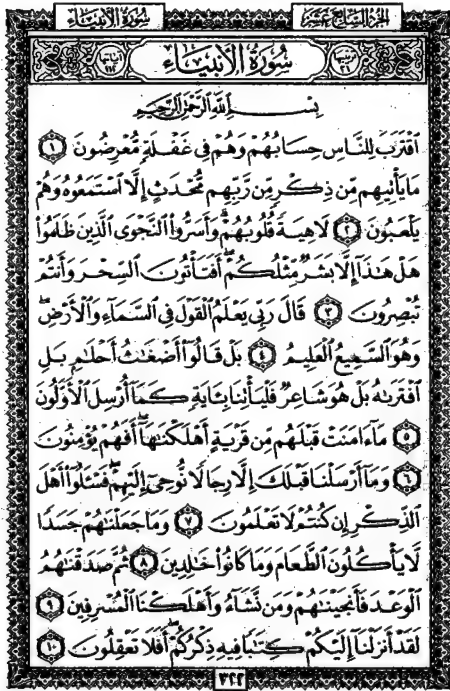 سُورَةُ الأَنبِيَاءِ الجُزْءُ السَّابِعَ عَشَرَ
سُورَةُ الأَنبِيَاءِ
بِسْمِ ٱللَّهِ ٱلرَّحْمَٰنِ ٱلرَّحِيمِ
ٱقْتَرَبَ لِلنَّاسِ حِسَابُهُمْ وَهُمْ فِى غَفْلَةٍ مُّعْرِضُونَ ١
مَا يَأْتِيهِم مِّن ذِكْرٍ مِّن رَّبِّهِم مُّحْدَثٍ إِلَّا ٱسْتَمَعُوهُ وَهُمْ
يَلْعَبُونَ ٢ لَاهِيَةً قُلُوبُهُمْ ۗ وَأَسَرُّوا۟ ٱلنَّجْوَى ٱلَّذِينَ ظَلَمُوا۟
هَلْ هَٰذَآ إِلَّا بَشَرٌ مِّثْلُكُمْ ۖ أَفَتَأْتُونَ ٱلسِّحْرَ وَأَنتُمْ
تُبْصِرُونَ ٣ قَالَ رَبِّى يَعْلَمُ ٱلْقَوْلَ فِى ٱلسَّمَآءِ وَٱلْأَرْضِ ۖ
وَهُوَ ٱلسَّمِيعُ ٱلْعَلِيمُ ٤ بَلْ قَالُوٓا۟ أَضْغَٰثُ أَحْلَٰمٍۭ بَلِ
ٱفْتَرَىٰهُ بَلْ هُوَ شَاعِرٌ فَلْيَأْتِنَا بِـَٔايَةٍ كَمَآ أُرْسِلَ ٱلْأَوَّلُونَ
٥ مَآ ءَامَنَتْ قَبْلَهُم مِّن قَرْيَةٍ أَهْلَكْنَٰهَآ ۖ أَفَهُمْ يُؤْمِنُونَ
٦ وَمَآ أَرْسَلْنَا قَبْلَكَ إِلَّا رِجَالًا نُّوحِىٓ إِلَيْهِمْ ۖ فَسْـَٔلُوٓا۟ أَهْلَ
ٱلذِّكْرِ إِن كُنتُمْ لَا تَعْلَمُونَ ٧ وَمَا جَعَلْنَٰهُمْ جَسَدًا
لَّا يَأْكُلُونَ ٱلطَّعَامَ وَمَا كَانُوا۟ خَٰلِدِينَ ٨ ثُمَّ صَدَقْنَٰهُمُ
ٱلْوَعْدَ فَأَنجَيْنَٰهُمْ وَمَن نَّشَآءُ وَأَهْلَكْنَا ٱلْمُسْرِفِينَ ٩
لَقَدْ أَنزَلْنَآ إِلَيْكُمْ كِتَٰبًا فِيهِ ذِكْرُكُمْ ۖ أَفَلَا تَعْقِلُونَ ١٠
٣٢٢